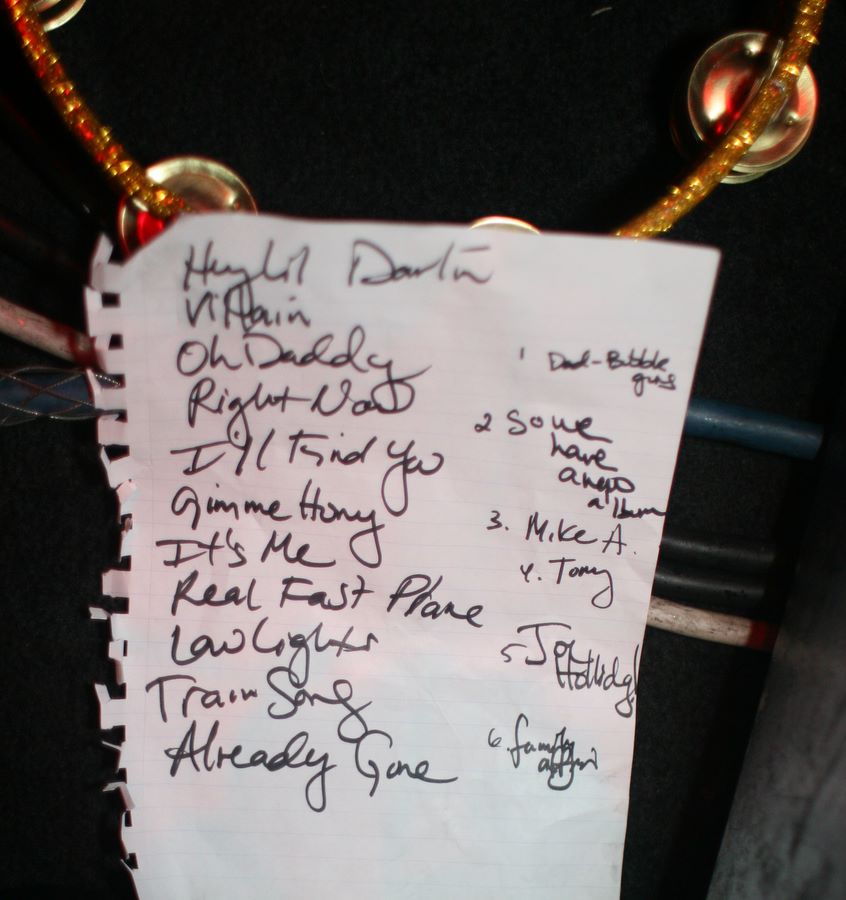 Hey Lil Darlin
Villain
Oh Daddy
Right Now
I'll Find You
Gimme Hony
It's Me
Real Fast Plane
Low Lights
Train Song
Already Gone
1 Dad-Bubble
gums
2 Some
have
a new
album
3. Mike A.
4. Tony
5 Joe
Holliday!
6. family
affair